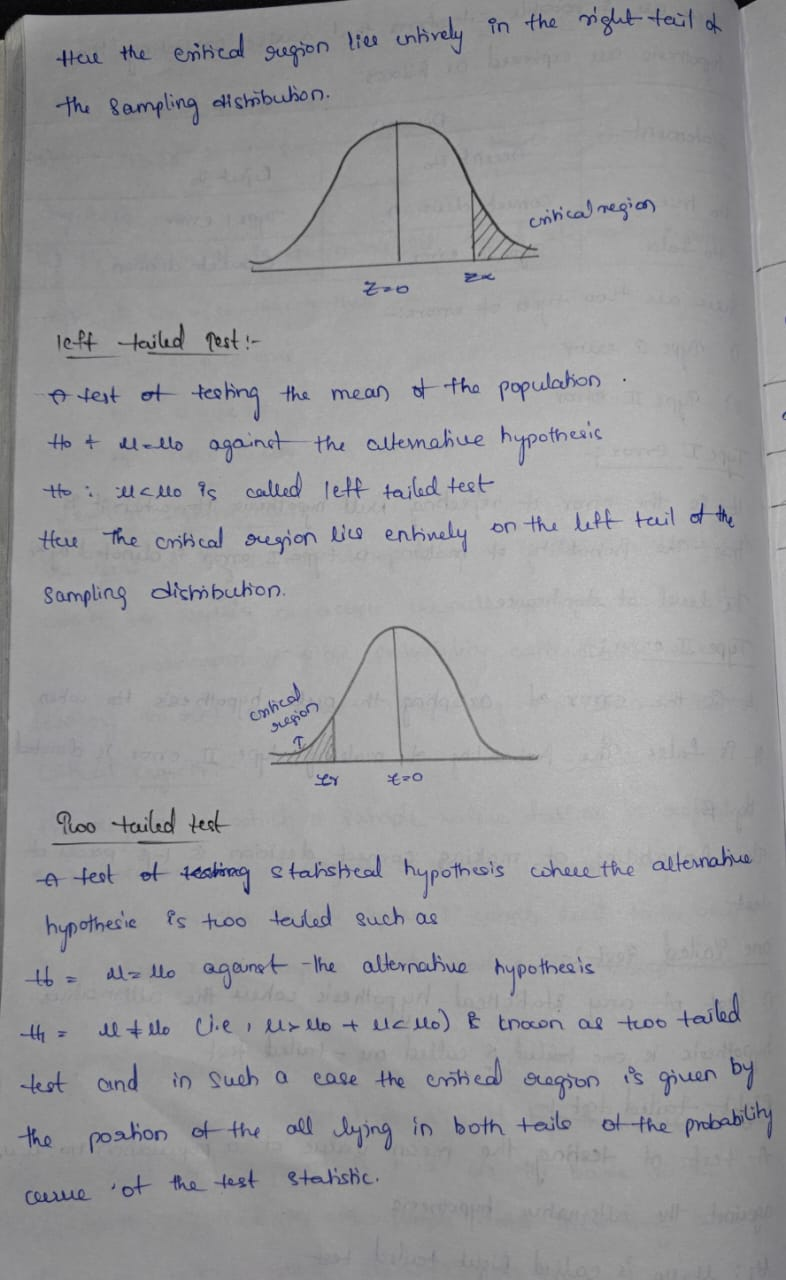 Here the critical region lies entirely in the right tail of
the sampling distribution.
critical region
Z=0
Zα
left tailed Test :-
A test of testing the mean of the population.
Ho + μ=μo against the alternative hypothesis
Ho : μ<μo is called left tailed test
Here The critical region lies entirely on the left tail of the
Sampling distribution.
critical
region
z=0
Two tailed test
A test of testing statistical hypothesis where the alternative
hypothesis is two tailed such as
Ho = μ=μo against the alternative hypothesis
H1 = μ≠μo (i.e, μ>μo + μ<μo) is known as two tailed
test and in such a case the critical region is given by
the portion of the all lying in both tails of the probability
curve of the test statistic.